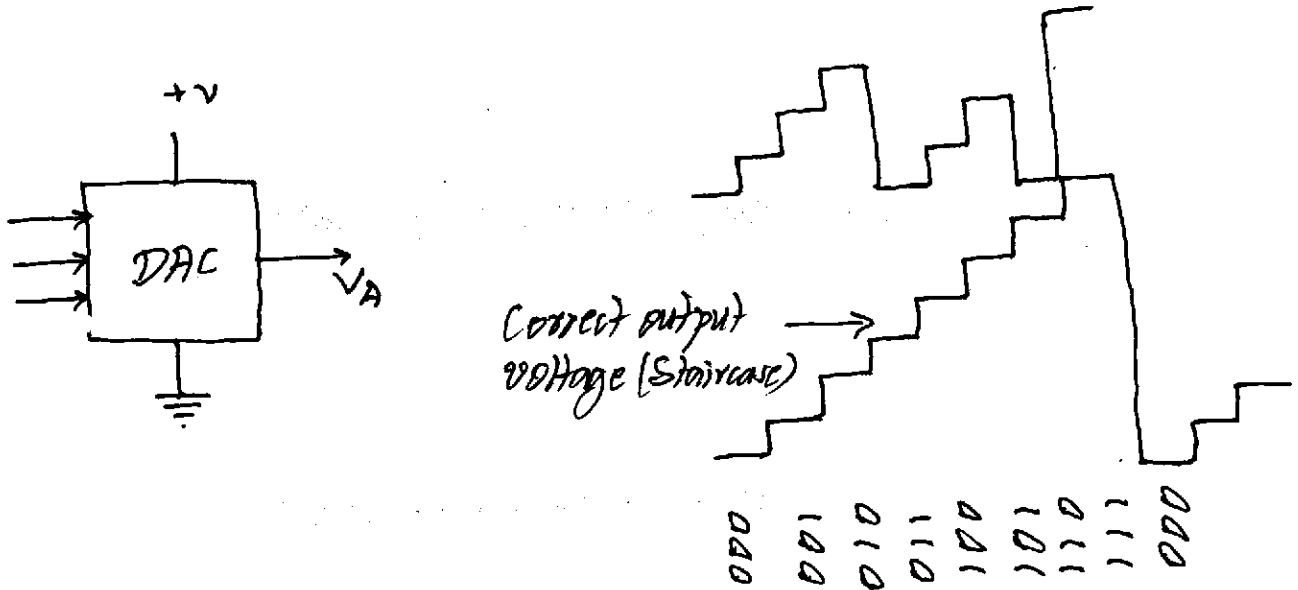 +v
DAC
VA
Correct output
voltage (Staircase)
000
001
010
011
100
101
110
111
000